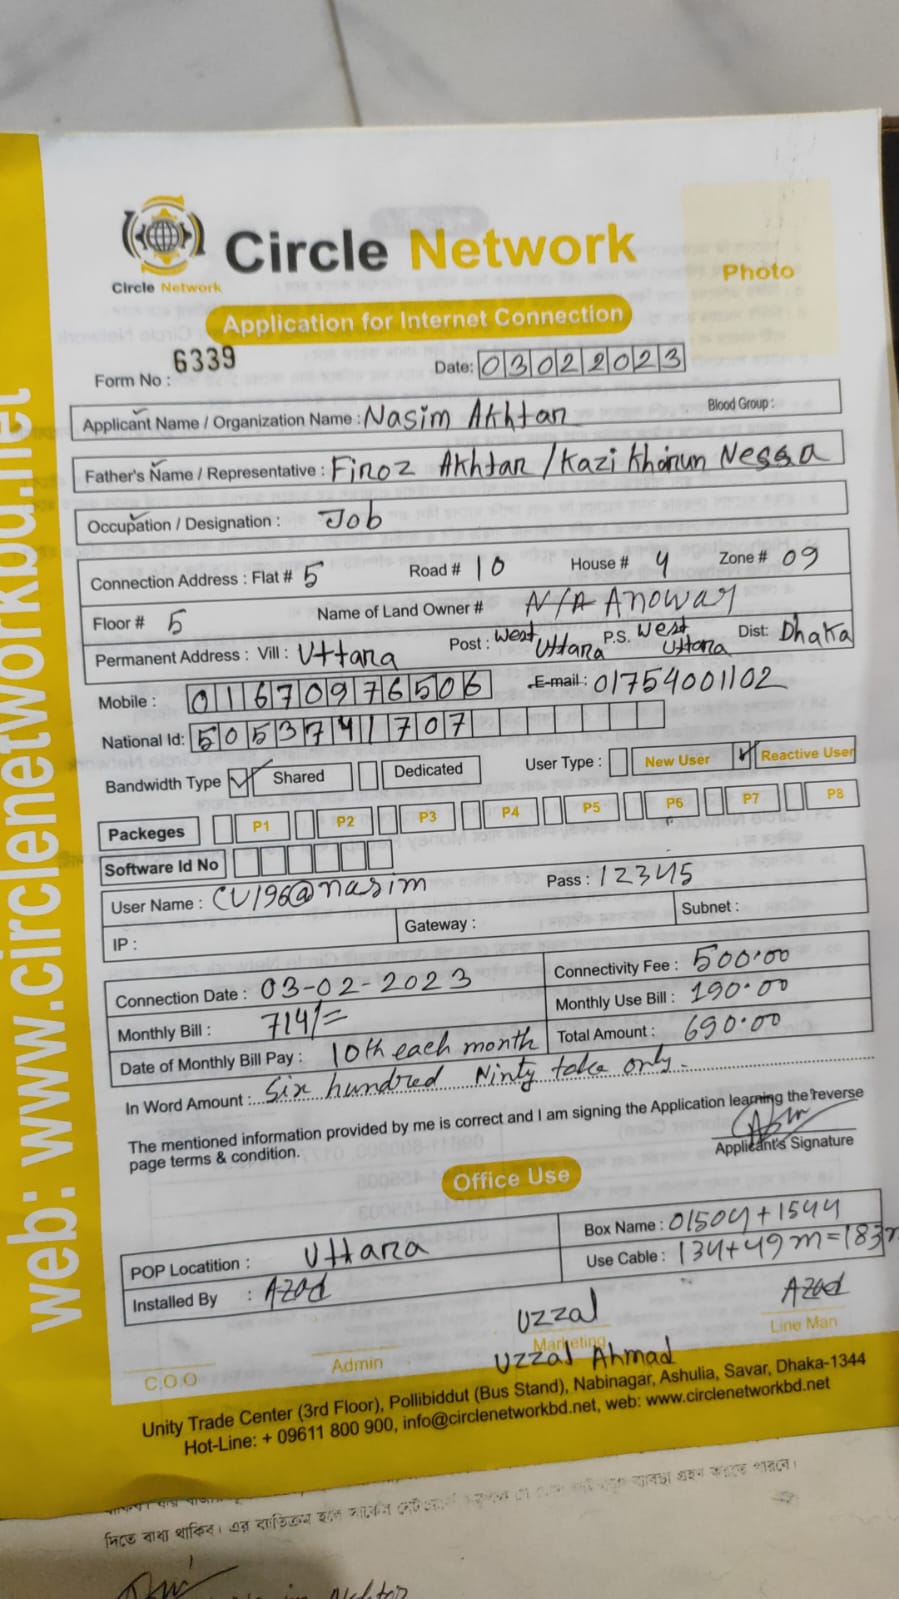 web: www.circlenetworkbd.net
Circle Network
Circle Network
Photo
Application for Internet Connection
Form No : 6339
Date: 03022023
Applicant Name / Organization Name : Nasim Akhtar
Blood Group :
Father's Name / Representative : Firoz Akhtar / Kazi Khairun Nessa
Occupation / Designation : Job
Connection Address : Flat # 5 Road # 10 House # 4 Zone # 09
Floor # 5 Name of Land Owner # N/A Anowar
Permanent Address : Vill : Uttara Post : West Uttara P.S. West Uttara Dist: Dhaka
Mobile : 01670976506 E-mail : 01754001102
National Id: 5053741707
Bandwidth Type Shared Dedicated User Type : New User Reactive User
Packeges P1 P2 P3 P4 P5 P6 P7 P8
Software Id No
User Name : CU196@nasim Pass : 12345
IP : Gateway : Subnet :
Connection Date : 03-02-2023 Connectivity Fee : 500.00
Monthly Bill : 714/= Monthly Use Bill : 190.00
Date of Monthly Bill Pay : 10th each month Total Amount : 690.00
In Word Amount : Six hundred Ninty taka only.
The mentioned information provided by me is correct and I am signing the Application learning the reverse
page terms & condition.
Applicant's Signature
Office Use
POP Locatition : Uttara Box Name : 01504+1544
Installed By : Azad Use Cable : 134+49m=183m
Uzzal Azad
C.O.O Admin Marketing Line Man
Uzzal Ahmad
Unity Trade Center (3rd Floor), Pollibiddut (Bus Stand), Nabinagar, Ashulia, Savar, Dhaka-1344
Hot-Line: + 09611 800 900, info@circlenetworkbd.net, web: www.circlenetworkbd.net
ব্যবস্থা গ্রহন করতে পারবে।
দিতে বাধ্য থাকিব। এর ব্যতিক্রম হলে সার্কেল নেটওয়ার্ক
Akhtar